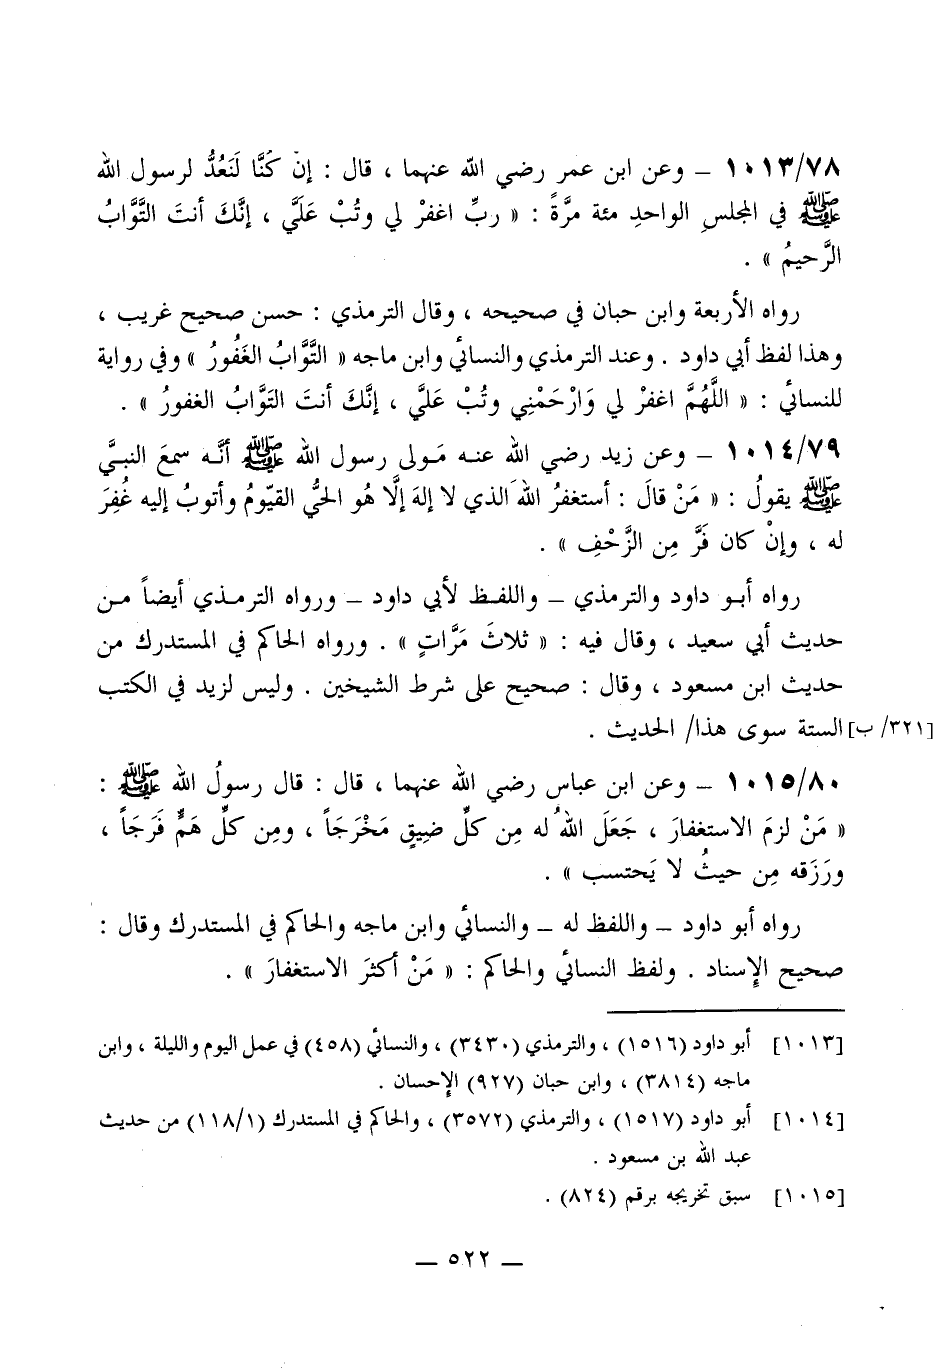 ١٠١٣/٧٨ – وعن ابن عمر رضي الله عنهما ، قال : إنْ كُنَّا لَنَعُدُّ لرسول الله
ﷺ في المجلسِ الواحدِ مئة مرَّةً : « ربِّ اغفرْ لي وتُبْ عَلَيَّ ، إنَّكَ أنتَ التَّوَّابُ
الرَّحيمُ » .
رواه الأربعة وابن حبان في صحيحه ، وقال الترمذي : حسن صحيح غريب ،
وهذا لفظ أبي داود . وعند الترمذي والنسائي وابن ماجه « التَّوَّابُ الغَفُورُ » وفي رواية
للنسائي : « اللَّهُمَّ اغفرْ لي وَارْحَمْنِي وتُبْ عَليَّ ، إنَّكَ أنتَ التَوَّابُ الغفورُ » .
١٠١٤/٧٩ – وعن زيد رضي الله عنه مَولى رسول الله ﷺ أنَّه سمعَ النبيَّ
ﷺ يقولُ : « مَنْ قالَ : أستغفرُ اللهَ الذي لا إلهَ إلَّا هو الحيُّ القيّومُ وأتوبُ إليه غُفِرَ
له ، وإنْ كان فَرَّ مِن الزَّحْفِ » .
رواه أبو داود والترمذي – واللفظ لأبي داود – ورواه الترمذي أيضاً من
حديث أبي سعيد ، وقال فيه : « ثلاثَ مَرَّاتٍ » . ورواه الحاكم في المستدرك من
حديث ابن مسعود ، وقال : صحيح على شرط الشيخين . وليس لزيد في الكتب
[٣٢١/ب] الستة سوى هذا/ الحديث .
١٠١٥/٨٠ – وعن ابن عباس رضي الله عنهما ، قال : قال رسولُ الله ﷺ :
« مَنْ لزمَ الاستغفارَ ، جَعَلَ اللهُ له مِن كلِّ ضيقٍ مَخْرَجَاً ، ومِن كلِّ هَمٍّ فَرَجَاً ،
ورَزَقه مِن حيثُ لا يَحتسب » .
رواه أبو داود – واللفظ له – والنسائي وابن ماجه والحاكم في المستدرك وقال :
صحيح الإسناد . ولفظ النسائي والحاكم : « مَنْ أكثرَ الاستغفارَ » .
[١٠١٣] أبو داود (١٥١٦) ، والترمذي (٣٤٣٠) ، والنسائي (٤٥٨) في عمل اليوم والليلة ، وابن
ماجه (٣٨١٤) ، وابن حبان (٩٢٧) الإحسان .
[١٠١٤] أبو داود (١٥١٧) ، والترمذي (٣٥٧٢) ، والحاكم في المستدرك (١١٨/١) من حديث
عبد الله بن مسعود .
[١٠١٥] سبق تخريجه برقم (٨٢٤) .
– ٥٢٢ –